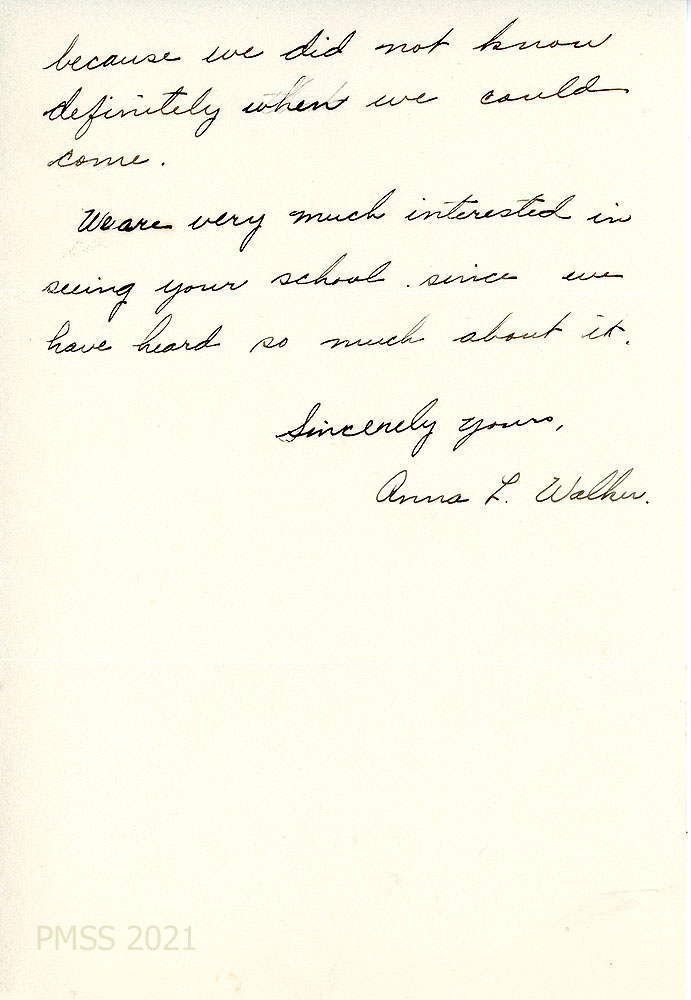 because we did not know
definitely when we could
come.
We are very much interested in
seeing your school. since we
have heard so much about it.
Sincerely yours,
Anna L. Walker.
PMSS 2021